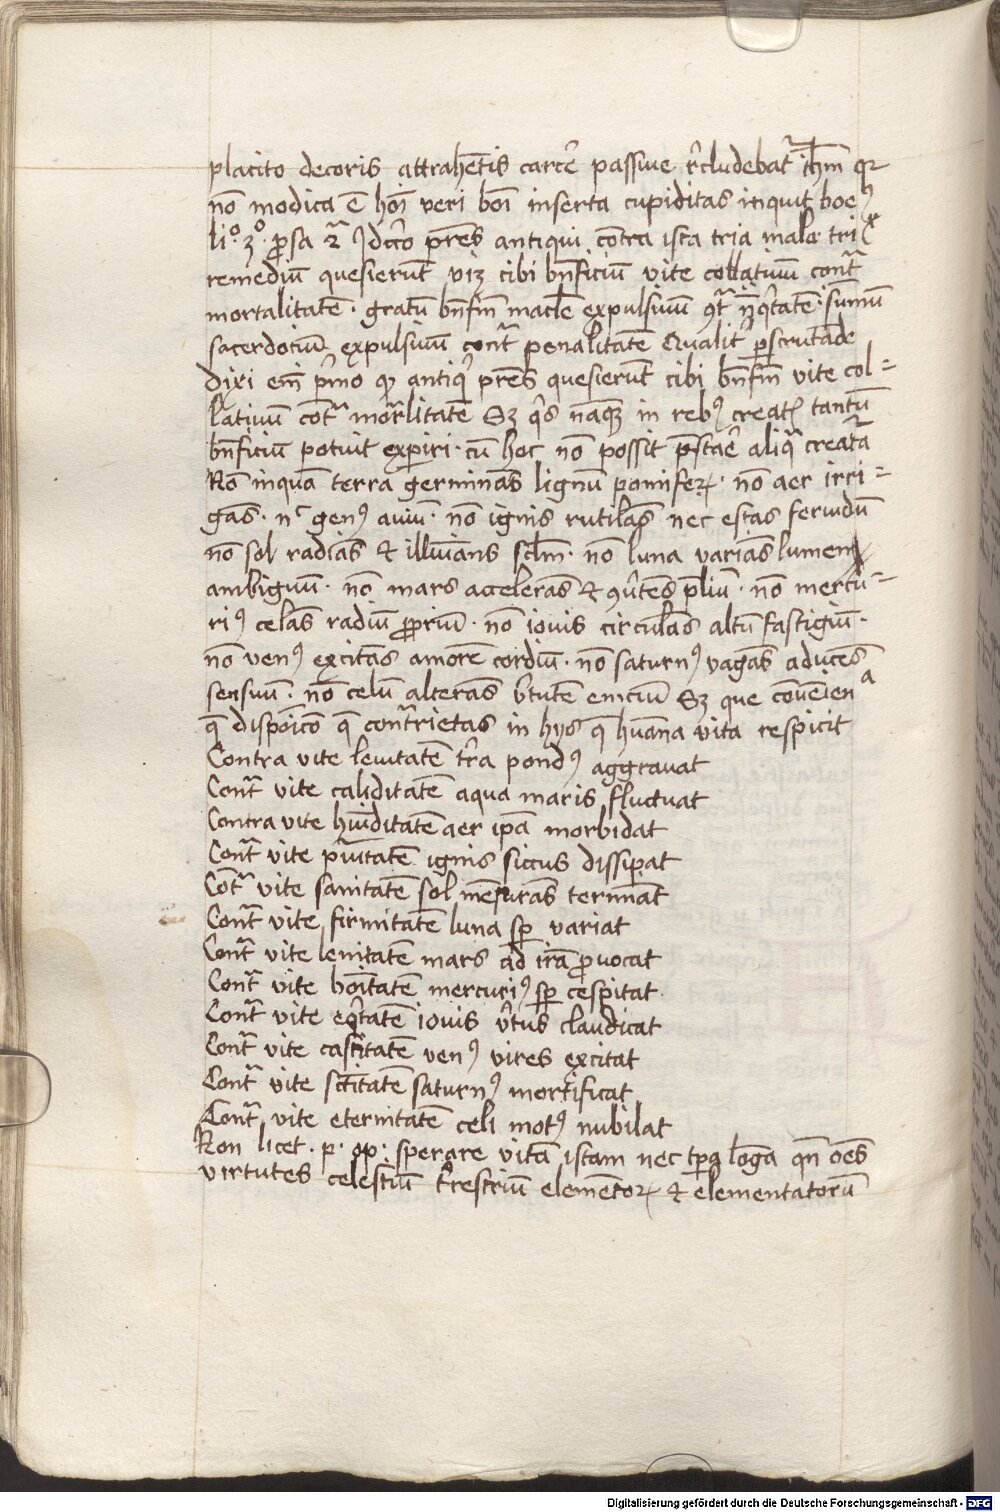 placito decoris attrahe͞tis carce͞r passiue r͛cludebat᷑ ih̅m qꝛ
no͞ modica e͞ ho͞i veri bo͞i inserta cupiditas inquit boeꝰ
li.º 3º. ꝓsa 2ª Jdcͦco pr͞es antiqui co͞tra ista tria mala triͣ
remediu͞ quesieru͞t viꝫ cibi bn͞ficiu͞ vite collatiuu͞ contͣ
mortalitate͞. gratu͞ bn͞fm macl͞e expulsiuu͞ ꝯtͣ iniq͛tate͞. su͞mu͞
sacerdociu͞ expulsiuu͞ contͣ penalitate͞ Qualit͛ ꝑscruta͞de
dixi em͞ p͛mo ꝙ antiq͛ pr͞es quesieru͞t cibi bn͞fm vite col=
latiuu͞ cotͣ͞ mor͛litate͞ Sꝫ q͛s na͞qꝫ in rebꝰ creatꝭ tantu͞
bn͞ficiu͞ potuit exꝑiri. cu͞ hoc no͞ possit p͞stare͛ aliqͣ creatͣa
No͞ inqua͞ terra germina͞s lignu͞ pomiferꝝ. no͞ aer irri=
ga͞s. nͨ genꝰ auiu͞. no͞ ignis rutila͞s nec estas feruidu͞
no͞ sol radia͞s et illu͞ia͞ns scl͞m. no͞ luna varia͞s lumen
ambiguu͞. no͞ mars accelera͞s et ꝯu͛te͞s p͞liu͞. no͞ mercu=
riꝰ cela͞s radiu͞ ꝓpriu͞. no͞ iouis circula͞s altu͞ fastigiu͞.
no͞ venꝰ excita͞s amore͞ cordiu͞. no͞ saturnꝰ vaga͞s aduce͞s
sensuu͞. no͞ celu͞ altera͞s v͛tute͞ emciu͞ Sꝫ que co͞ue͞ienͣ
q̅ dispo͞ico͞ q̅ contͣrietas in hijs q̅ hu͞ana vita respicit
Contra vite leuitate͞ t͛ra pondꝰ aggrauat
Contͣ vite caliditate͞ aqua maris fluctuat
Contra vite hu͞iditate͞ aer ipa͞ morbidat
Contͣ vite p͛uitate͞ ignis siccus dissipat
Co͞tͣ vite sanitate͞ sol me͞sura͞s termi͞at
Contͣ vite firmitate͞ luna sꝑ variat
Contͣ vite lenitate͞ mars ad ira͞ ꝓuocat
Contͣ vite bo͞itate͞ mercuriꝰ sꝑ cespitat.
Contͣ vite eq͛tate͞ iouis v͛tus claudicat
Contͣ vite castitate͞ venꝰ vires excitat
Contͣ vite sc͞titate͞ saturnꝰ mortificat
Contͣ vite eternitate͞ celi motꝰ nubilat
Non licet. p. op. sperare vita͞ istam nec tp͞a lo͞ga qn͞ o͞es
virtutes celestiu͞ t͛restriu͞ eleme͞toꝝ et elementatoru͞